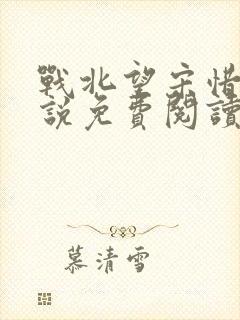 戰北望宋惜
說免費閱讀
慕清雪